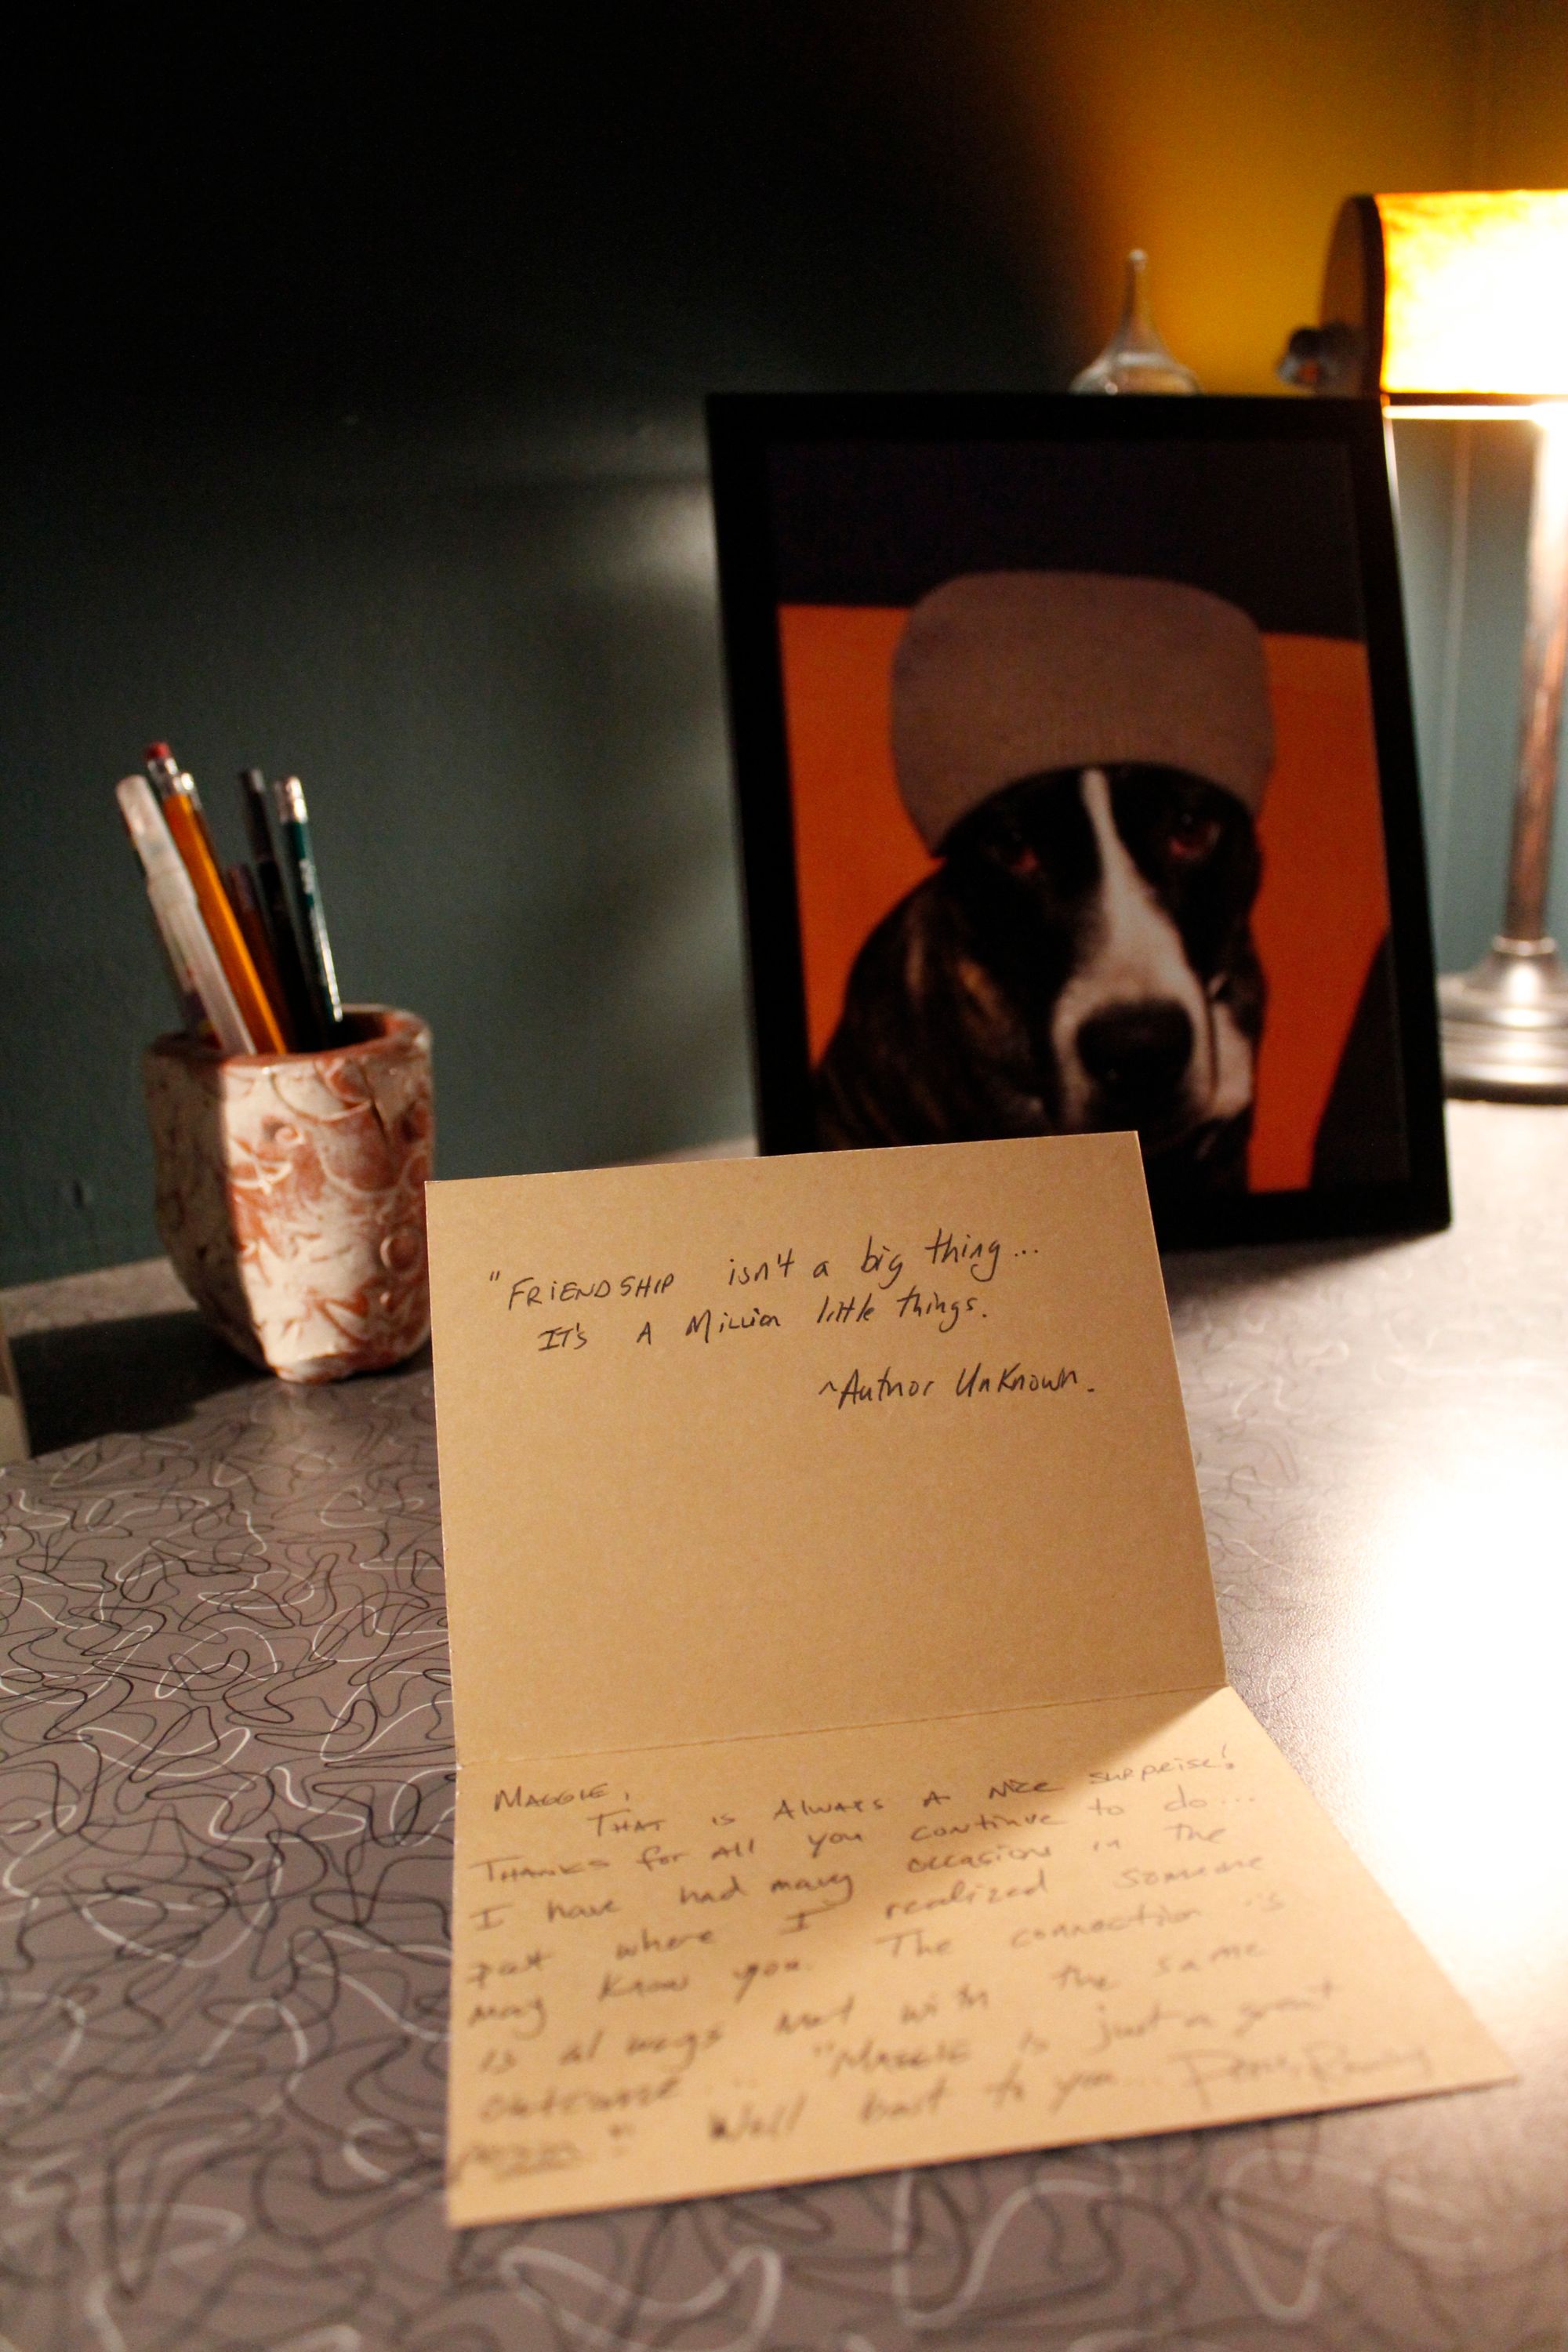 "FRIENDSHIP isn't a big thing...
IT'S A Million little things.
~Author Unknown.
MAGGIE,
THAT is ALWAYS A NICE surprise!
THANKS for All you continue to do...
I have had many occasions in the
past where I realized someone
may know you. The connection is
is always met with the same
outcome... "MAGGIE is just a great
person." Well best to you...